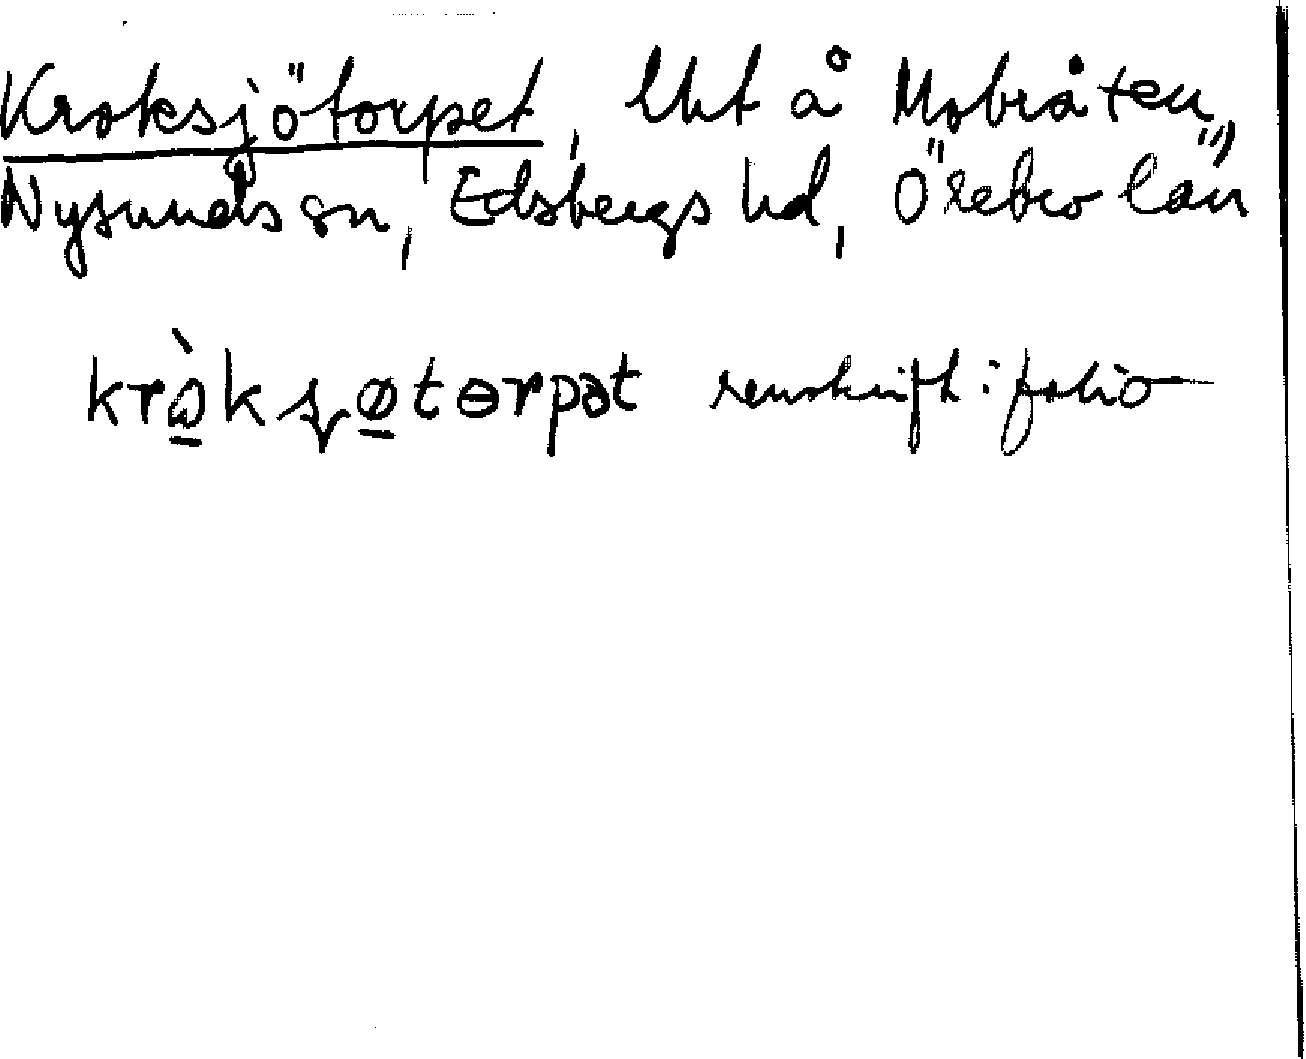 Kroksjötorpet, lht å Mobråten,
Nysunds sn, Edsbergs hd, Örebro län
krò̱ksjø̱tɵrpət renskrift: folio